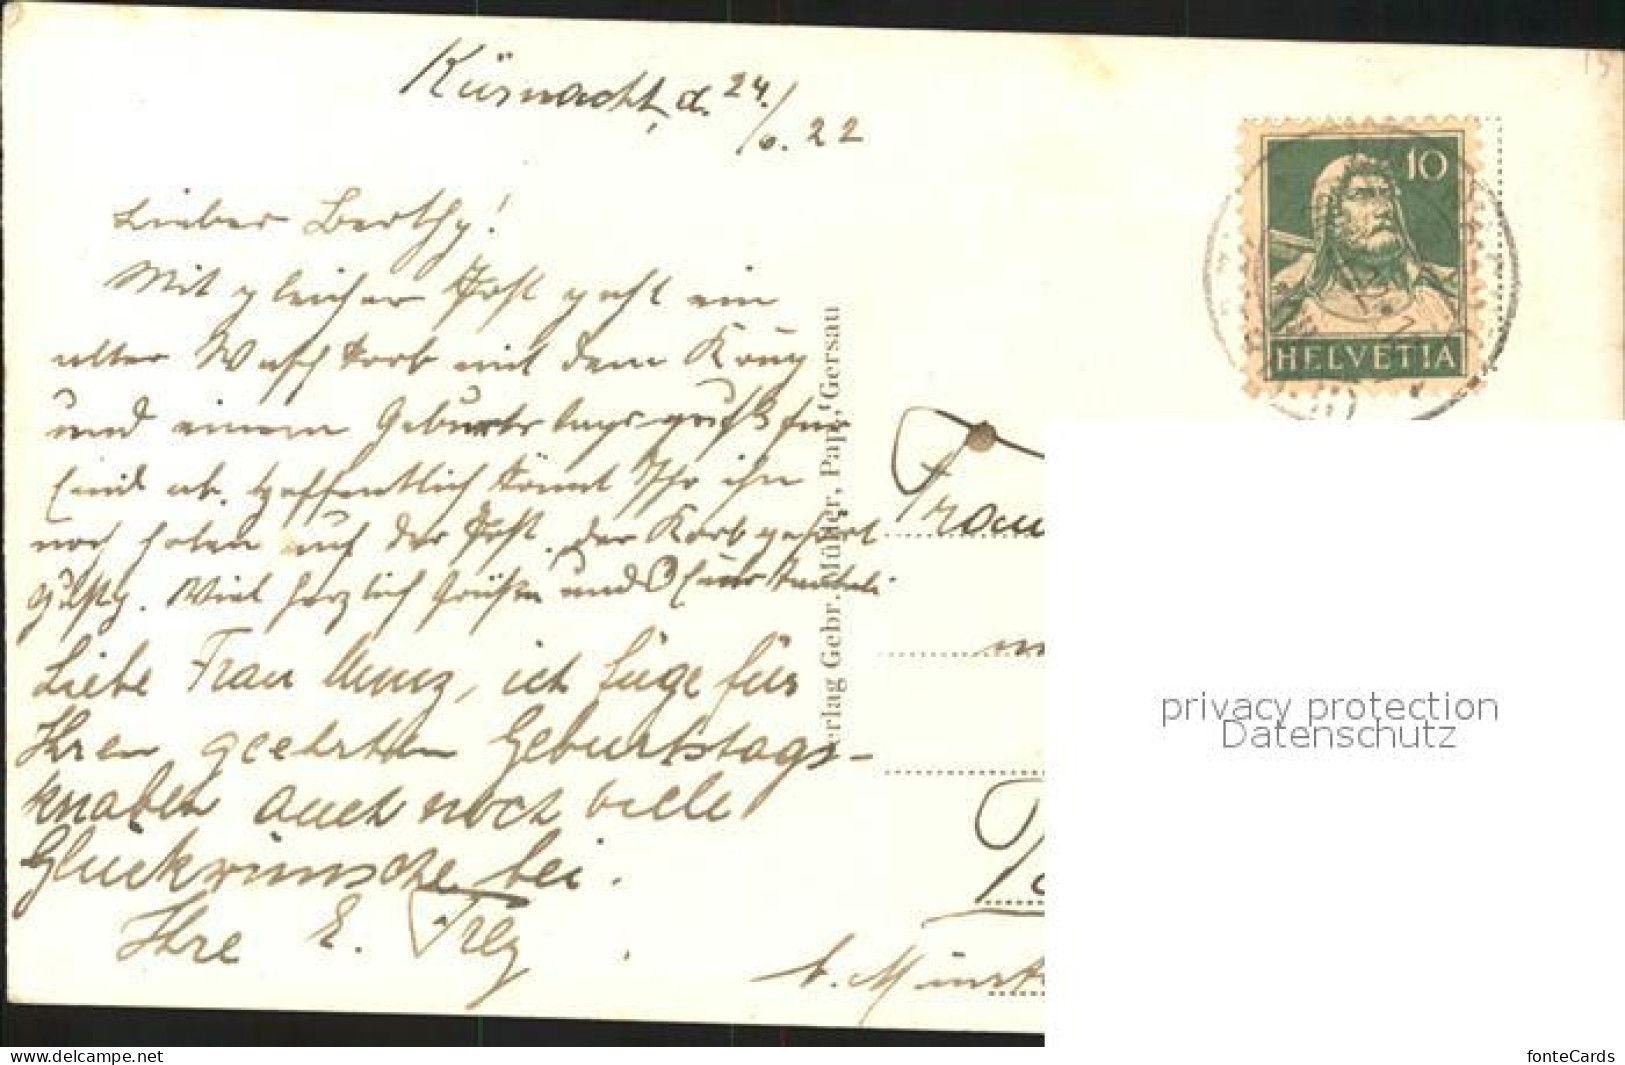 Küsnacht, d. 24./6. 22
Lieber Berthy!
Mit gleicher Post geht ein
alter Waschkorb mit dem Krug
und einem Geburtstagsgruß für
Emil ab. Hoffentlich könnt Ihr ihn
noch holen auf der Post. Der Korb gehört
Gusty. Viel herzlich Grüße und Euer
Liebe Frau Munz, ich füge für
Ihren geehrten Geburtstags-
knaben auch noch viele
Glückwünsche bei.
Ihre E. Frey
Verlag Gebr. Müller, Pap, Gersau
10
HELVETIA
Frau
b. Münst
privacy protection
Datenschutz
www.delcampe.net
fonteCards